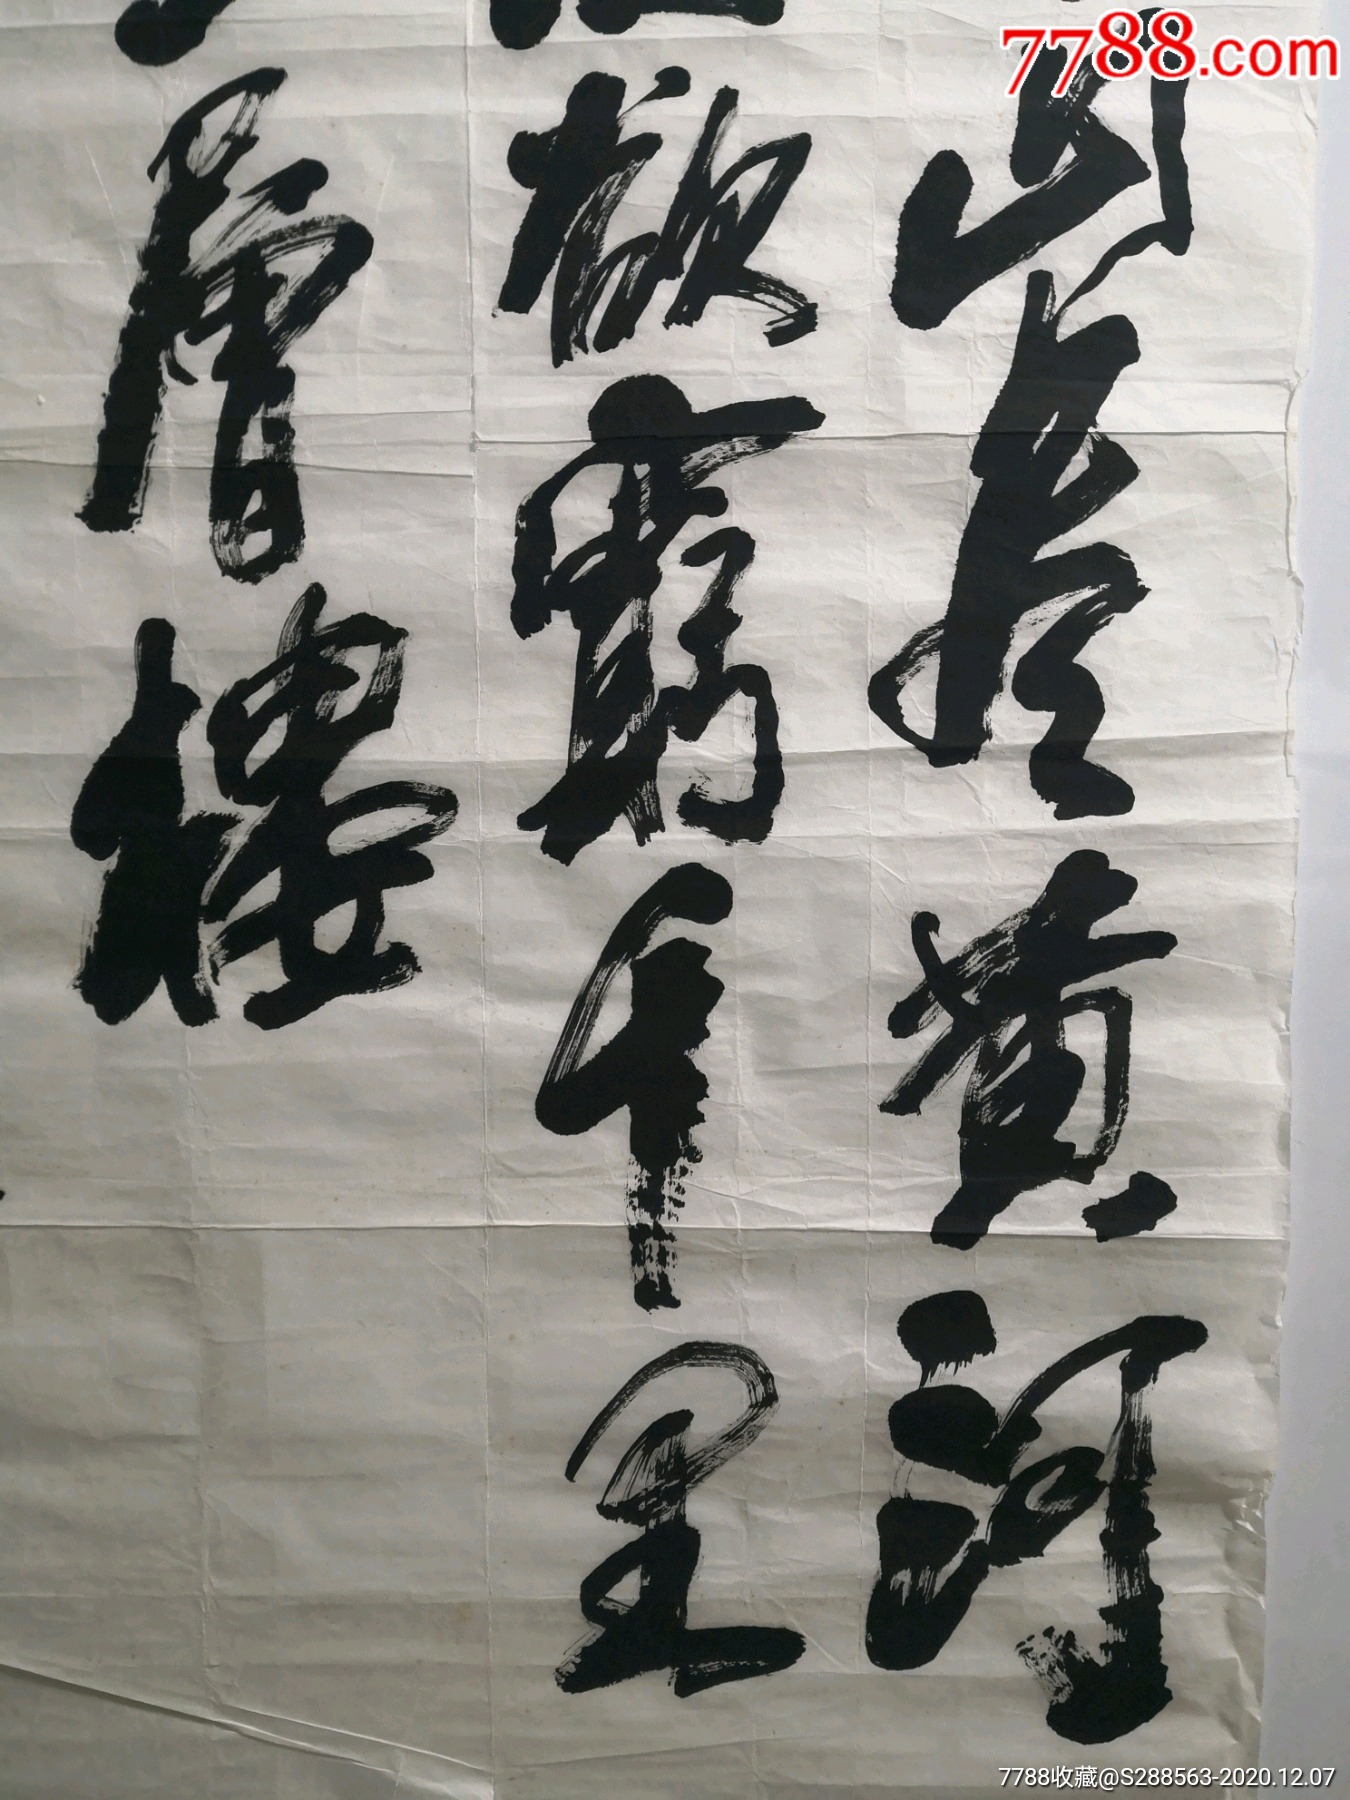 7788.com
山盡黄河
欲窮千里
層樓
7788收藏@S288563-2020.12.07